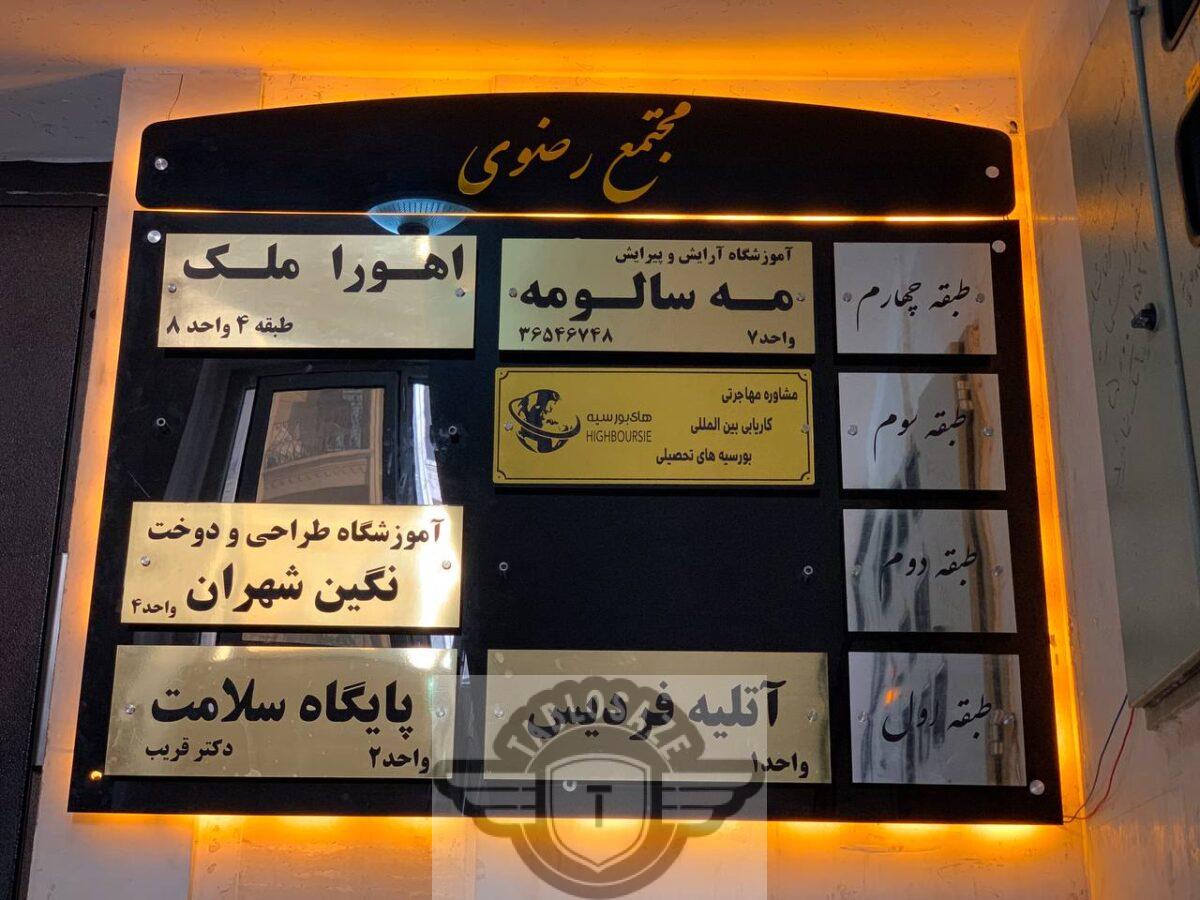 مجتمع رضوی
طبقه چهارم
آموزشگاه آرایش و پیرایش
مـه سالـومه
واحد۷
۳۶۵۴۶۷۴۸
اهـورا ملـک
طبقه ۴ واحد ۸
طبقه سوم
مشاوره مهاجرتی
کاریابی بین المللی
بورسیه های تحصیلی
های‌بورسیه
HIGHBOURSIE
طبقه دوم
آموزشگاه طراحی و دوخت
نگین شهران
واحد۴
طبقه اول
آتلیه فردیس
واحد۱
پایگاه سلامت
واحد۲
دکتر قریب
T